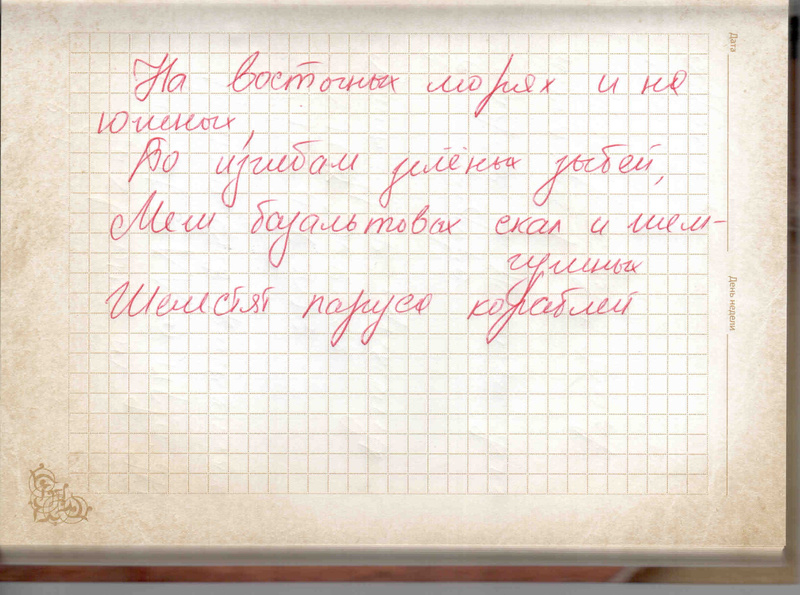 На восточных морях и на
южных,
По изгибам зелёных зыбей,
Меж базальтовых скал и жем-
чужных
Шелестят паруса кораблей
Дата
День недели